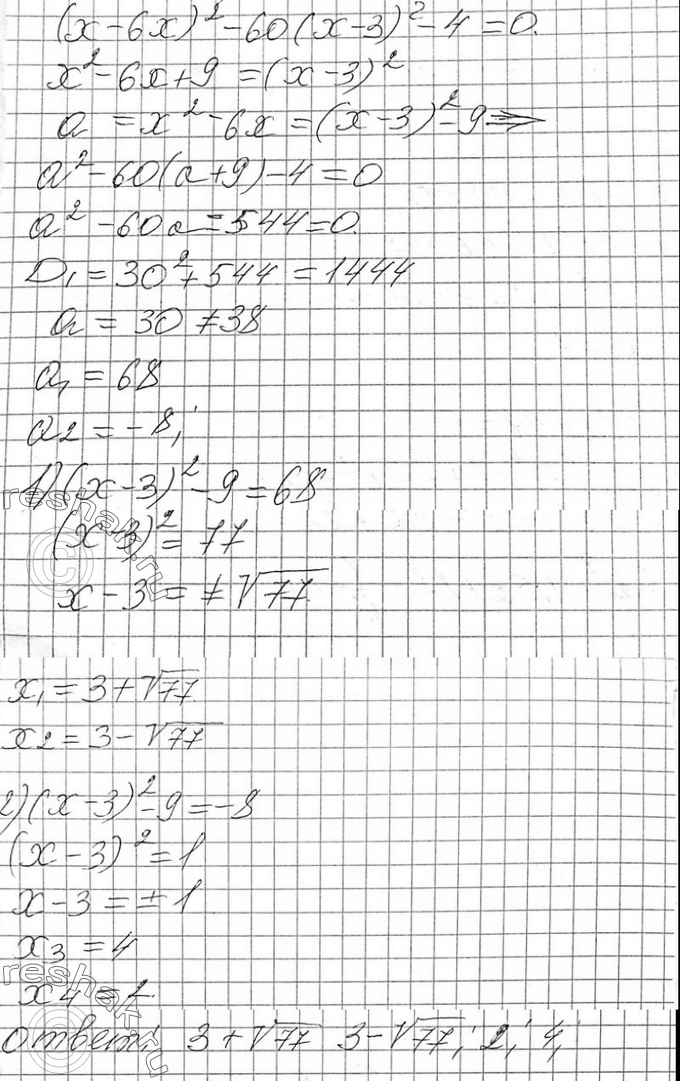 (x-6x)²-60(x-3)²-4=0.
x²-6x+9=(x-3)²
a=x²-6x=(x-3)²-9⇒
a²-60(a+9)-4=0
a²-60a-544=0.
D₁=30²+544=1444
a=30±38
a₁=68
a₂=-8;
1)(x-3)²-9=68
(x-3)²=77
x-3=±√77
x₁=3+√77
x₂=3-√77
2)(x-3)²-9=-8
(x-3)²=1
x-3=±1
x₃=4
reshak.ru
ответ: 3+√77 3-√77; 2; 4;